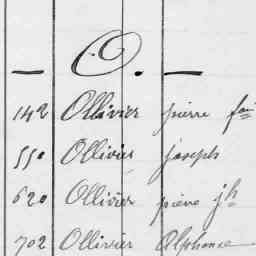 — O. —
142 Ollivier pierre
550 Ollivier joseph
620 Ollivier pierre jh
702 Ollivier Alphonse